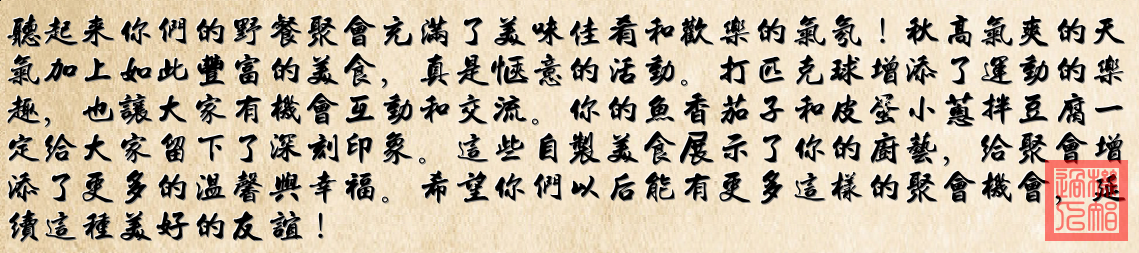 聽起来你們的野餐聚會充滿了美味佳肴和歡樂的氣氛！秋高氣爽的天
氣加上如此豐富的美食，真是愜意的活動。打匹克球增添了運動的樂
趣，也讓大家有機會互動和交流。你的魚香茄子和皮蛋小蔥拌豆腐一
定給大家留下了深刻印象。這些自製美食展示了你的廚藝，給聚會增
添了更多的溫馨與幸福。希望你們以后能有更多這樣的聚會機會，延
續這種美好的友誼！